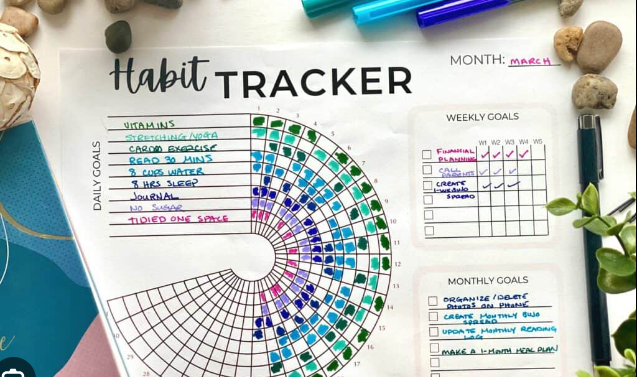 Habit TRACKER
MONTH: MARCH
DAILY GOALS
VITAMINS
STRETCHING/YOGA
CARDIO EXERCISE
READ 30 MINS
8 CUPS WATER
8 HRS SLEEP
JOURNAL
NO SUGAR
TIDIED ONE SPACE
1 2 3 4 5 6 7 8 9 10 11 12 13 14 15 16 17
28
29
WEEKLY GOALS
W1 W2 W3 W4 W5
FINANCIAL
PLANNING
CALL
PARENTS
CREATE
SPREAD
MONTHLY GOALS
ORGANIZE/DELETE
PHOTOS ON PHONE
CREATE MONTHLY BUJO
SPREAD
UPDATE MONTHLY READING
LOG
MAKE A 1-MONTH MEAL PLAN